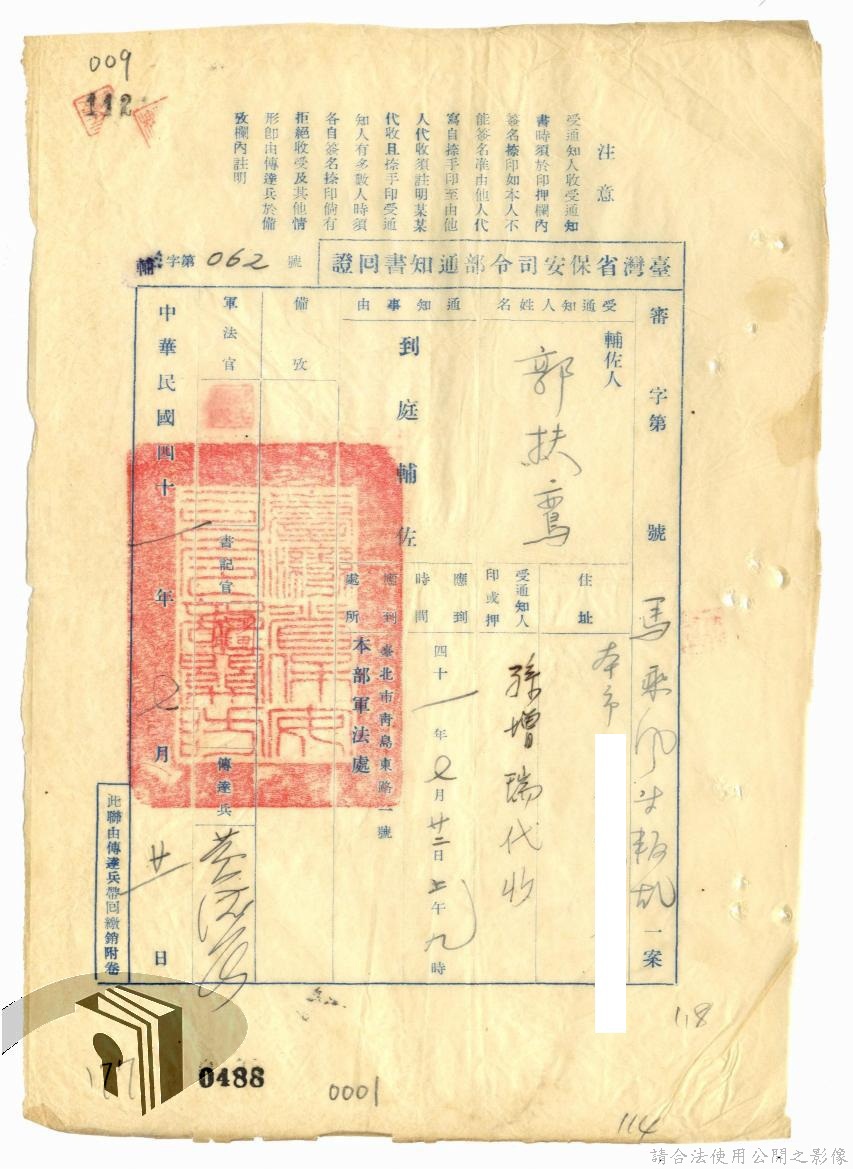 009
112
注意
受通知人收受通知
書時須於印押欄內
簽名捺印如本人不
能簽名准由他人代
寫自捺手印至由他
人代收須註明某某
代收且捺手印受通
知人有多數人時須
各自簽名捺印倘有
拒絕收受及其他情
形卽由傳達兵於備
攷欄內註明
臺灣省保安司令部通知書回證
輔字第062號
審字第 號 馬乘風 叛亂一案
受通知人姓名
輔佐人
郭扶鸞
住址
本市
受通知人
印或押
孫增瑞代收
通知事由
到庭輔佐
應到
時間
四十一年七月廿二日上午九時
應到
處所
臺北市青島東路一號
本部軍法處
備攷
軍法官
書記官
傳達兵
中華民國四十一年七月廿一日
此聯由傳達兵帶回繳銷附卷
118
177
0488
0001
114
請合法使用公開之影像